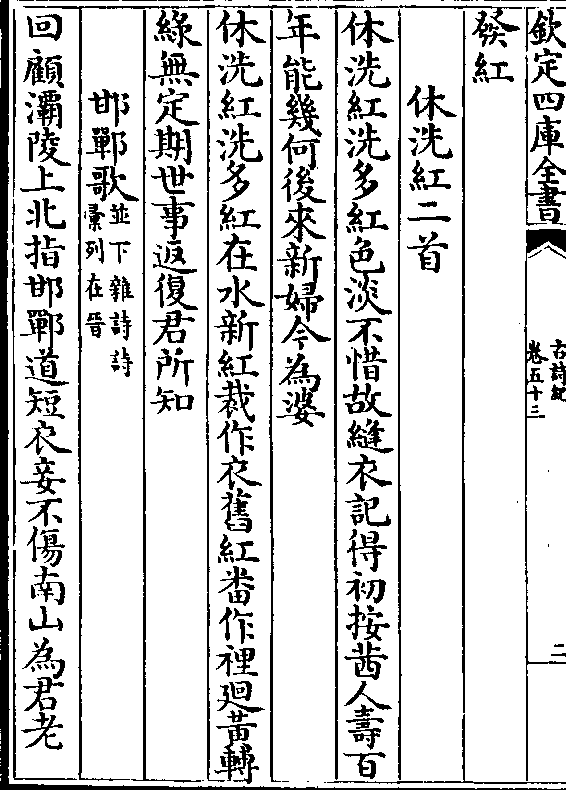 欽定四庫全書
古詩紀
卷五十三
二
發紅
休洗紅二首
休洗紅洗多紅色淡不惜故縫衣記得初按茜人壽百
年能幾何後來新婦今為婆
休洗紅洗多紅在水新紅裁作衣舊紅畨作裡迴黃轉
綠無定期世事返復君所知
邯鄲歌
並下雜詩詩
彚列在晉
回顧灞陵上北指邯鄲道短衣妾不傷南山為君老